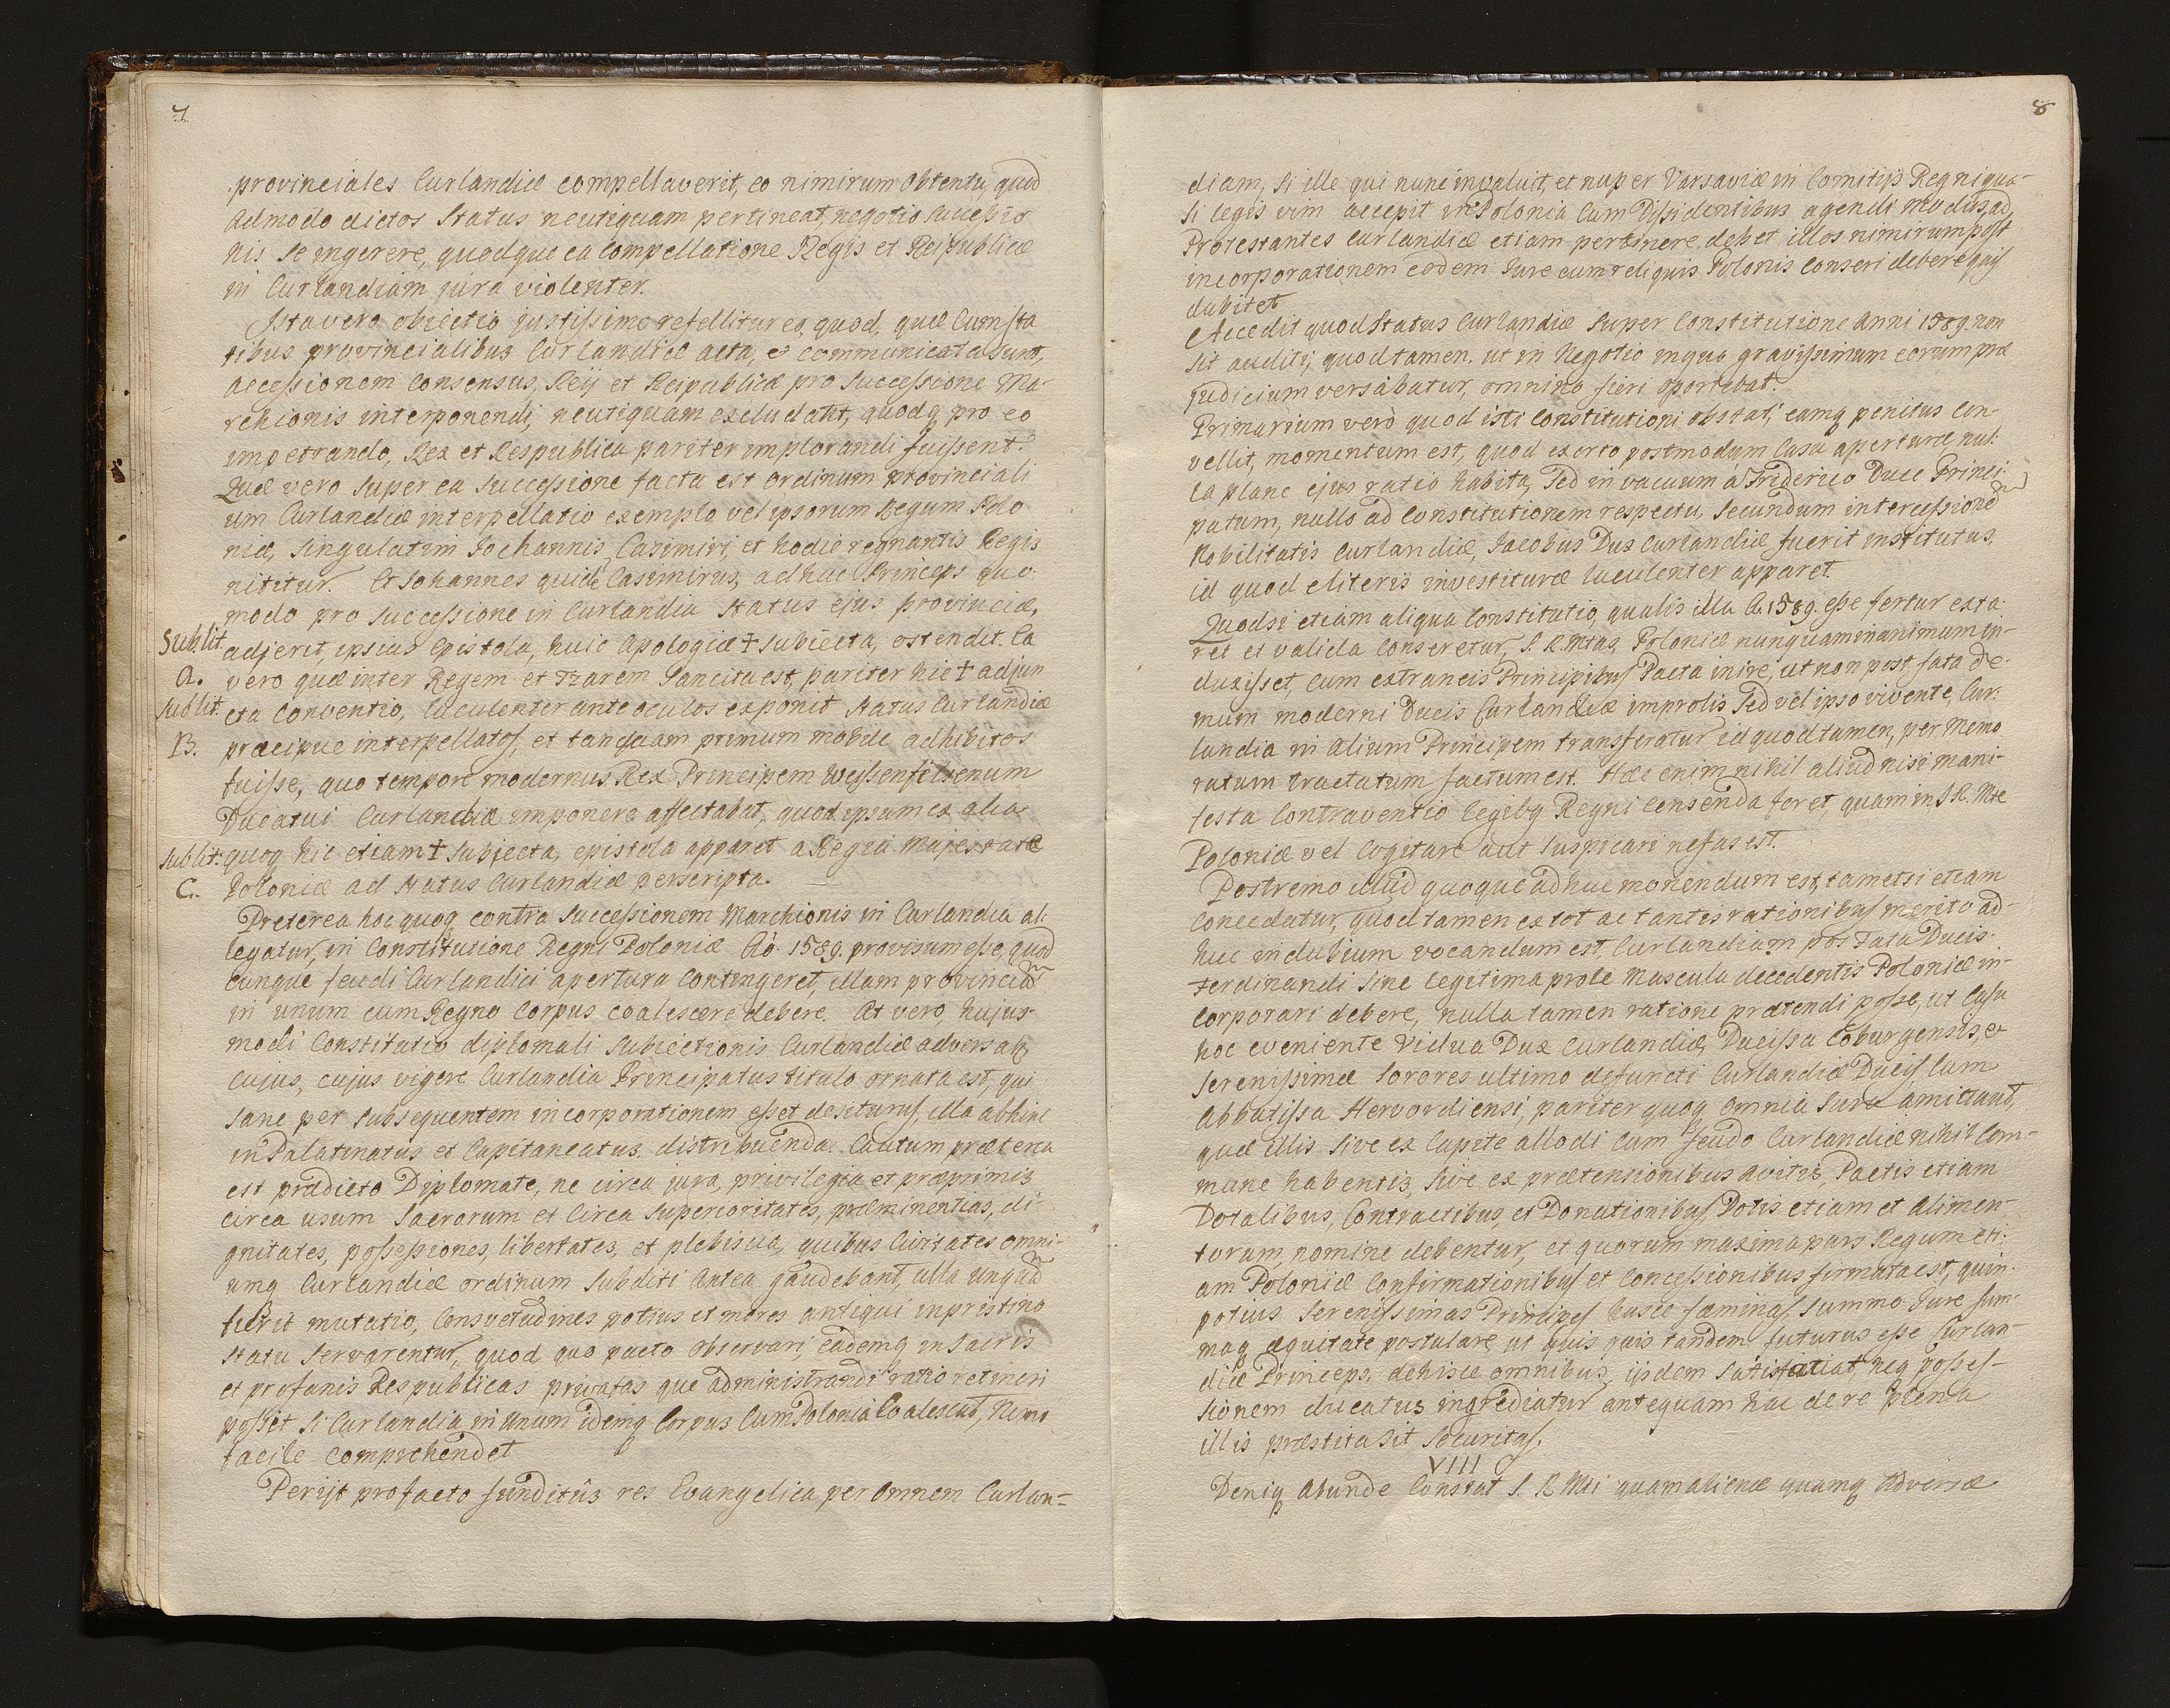 7
provinciales Curlandiæ compellaverit, eo nimirum obtentu, quod
admodo dictos Status neutiquam pertineat, negotio successio
nis se ingerere, quodque ea compellatione Regis et Reipublicæ
in Curlandiam jura violenter.
Ista vero objectio justissime refellitur eo, quod, quæ cum sta
tibus provincialibus Curlandiæ acta, et communicata sunt,
accessionem consensus, Regij et Reipublicæ pro successione Ma-
rchionis interponendi, neutiquam excludant, quodq pro eo
impetrando, Rex et Respublica pariter implorandi fuissent.
Quæ vero super ea successione facta est ordinum provinciali
um Curlandiæ interpellatio exemplo vel ipsorum Regum Polo
niæ, singulatim Johannis Casimiri, et hodie regnantis Regis
nititur. Et Johannes quidē Casimirus, adhuc Princeps quo-
modo pro successione in Curlandia status ejus provinciæ,
Sub lit. adjerit, ipsius Epistola, huic Apologiæ † subjecta, ostendit. Ea
A. vero quæ inter Regem et Tzarem Sancita est, pariter hic † adjun
sub lit. cta conventio, luculenter ante oculos exponit status Curlandiæ
B. præcipue interpellatos, et tanquam primum mobile adhibitos
fuisse, quo tempore modernus Rex Principem Weissenfelsenum
Ducatui Curlandiæ imponere affectabat, quod ipsum ex alia
sub lit: quoq hic etiam † subjecta, epistola apparet a Regia Majestate
C. Poloniæ ad status Curlandiæ perscripta.
Preterea hoc quoq contra successionem Marchionis in Curlandia al-
legatur, in Constitutione Regni Poloniæ Aō. 1589. provisum esse, quod
cunque feudi Curlandici apertura contingeret, illam provinciam
in unum cum Regno Corpus coalescere debere. At vero, hujus-
modi Constitutio diplomati subjectionis Curlandiæ adversat
cujus, cujus vigere Curlandia Principatus titulo ornata est, qui
sane per subsequentem incorporationem esset desiturus, illa abhinc
in Palatinatus et Capitaneatus distribuenda. Cautum præterea
est prædicto Diplomate, ne circa jura, privilegia et præprimis
circa usum Sacrorum et circa superioritates, præminentias, di-
gnitates, possessiones, libertates, et plebiscita, quibus Civitates omni-
umq Curlandiæ ordinum subditi antea gaudebant, ulla unquam
fuerit mutatio, consvetudines potius et mores antiqui in pristino
statu servarentur, quod quo pacto observari, eademq in sacris
et profanis Respublicas privatas que administrandi ratio retineri
possit si Curlandia in unum idemq Corpus cum Polonia coalescat, nemo
facile comprehendet
Perijt profacto funditùs res Evangelica per omnem Curlan=
8
diam, si ille qui nunc invaluit, et nuper Varsaviæ in Comitijs Regni qua-
si legis vim accepit in Polonia cum Dissidentibus agendi modus, ad
Protestantes Curlandiæ etiam pertinere debet illos nimirum post
incorporationem eodem Jure cum reliquis Polonis conseri debere quis
dubitet
Accedit quod status Curlandiæ super Constitutione anni 1589. non
sit auditi, quod tamen, ut in Negotio in quo gravissimum eorum præ
judicium versabatur, omnino fieri oportebat.
Primarium verò quod isti Constitutioni obstat, eamq penitus con-
vellit, momentum est, quod exorto postmodum Casu aperturæ nul-
la plane ejus ratio habita, Sed in vacuum â Friderico Duce Princi-
patum, nullo ad Constitutionem respectu, secundum intercessionem
Nobilitatis Curlandiæ, Jacobus Dux Curlandiæ fuerit institutus,
id quod e literis investituræ luculenter apparet.
Quodsi etiam aliqua Constitutio, qualis illa A. 1589. esse fertur exta-
ret et valida conseretur, S. R. Mtas, Poloniæ nunquam in animum in-
duxisset, cum extraneis Principibus Pacta inire, ut non post fata de-
mum moderni Ducis Curlandiæ improlis Sed vel ipso vivente, Cur-
landia in alium Principem transferatur id quod tamen, per memo
ratum tractatum factum est. Hæc enim nihil aliud nisi mani-
festa Contraventio legibq Regni censenda foret, quam in S. R. Mte
Poloniæ vel Cogitare aut suspicari nefas est.
Postremo illud quoque adhuc monendum est, tametsi etiam
concedatur, quod tamen ex tot ac tantis rationibus merito ad-
huc in dubium vocandum est, Curlandiam post Fata Ducis
Ferdinandi sine legitima prole mascula decedentis Poloniæ in-
corporari debere, nulla tamen ratione prætendi posse, ut Casu
hoc eveniente Vidua Dux Curlandiæ, Ducissa Coburgensis, et
Serenissimæ Sorores ultimo defuncti Curlandiæ Ducis, cum
Abbatissa Hervordiensi, pariter quoq omnia Jura amittant,
quæ illis sive ex Capite allodi cum feudo Curlandiæ nihil com-
mune habentis, sive ex prætensionibus avitis, Pactis etiam
Dotalibus, Contractibus, et Donationibus, Dotis etiam et alimen-
torum, nomine debentur, et quorum maxima pars Regum eti-
am Poloniæ Confirmationibus et Concessionibus firmata est, quin
potius Serenissimas Principes hasce fæminas, summo Jure sum-
maq æquitate postulare, ut quis quis tandem futurus esse Curlan-
diæ Princeps, dehisce omnibus, ijsdem satisfaciat, neq posses-
sionem ducatus ingrediatur antequam hac de re plena
illis præstita sit securitas.
VIII
Deniq abunde Constat S. R. Mti quam alienæ quamq adversæ